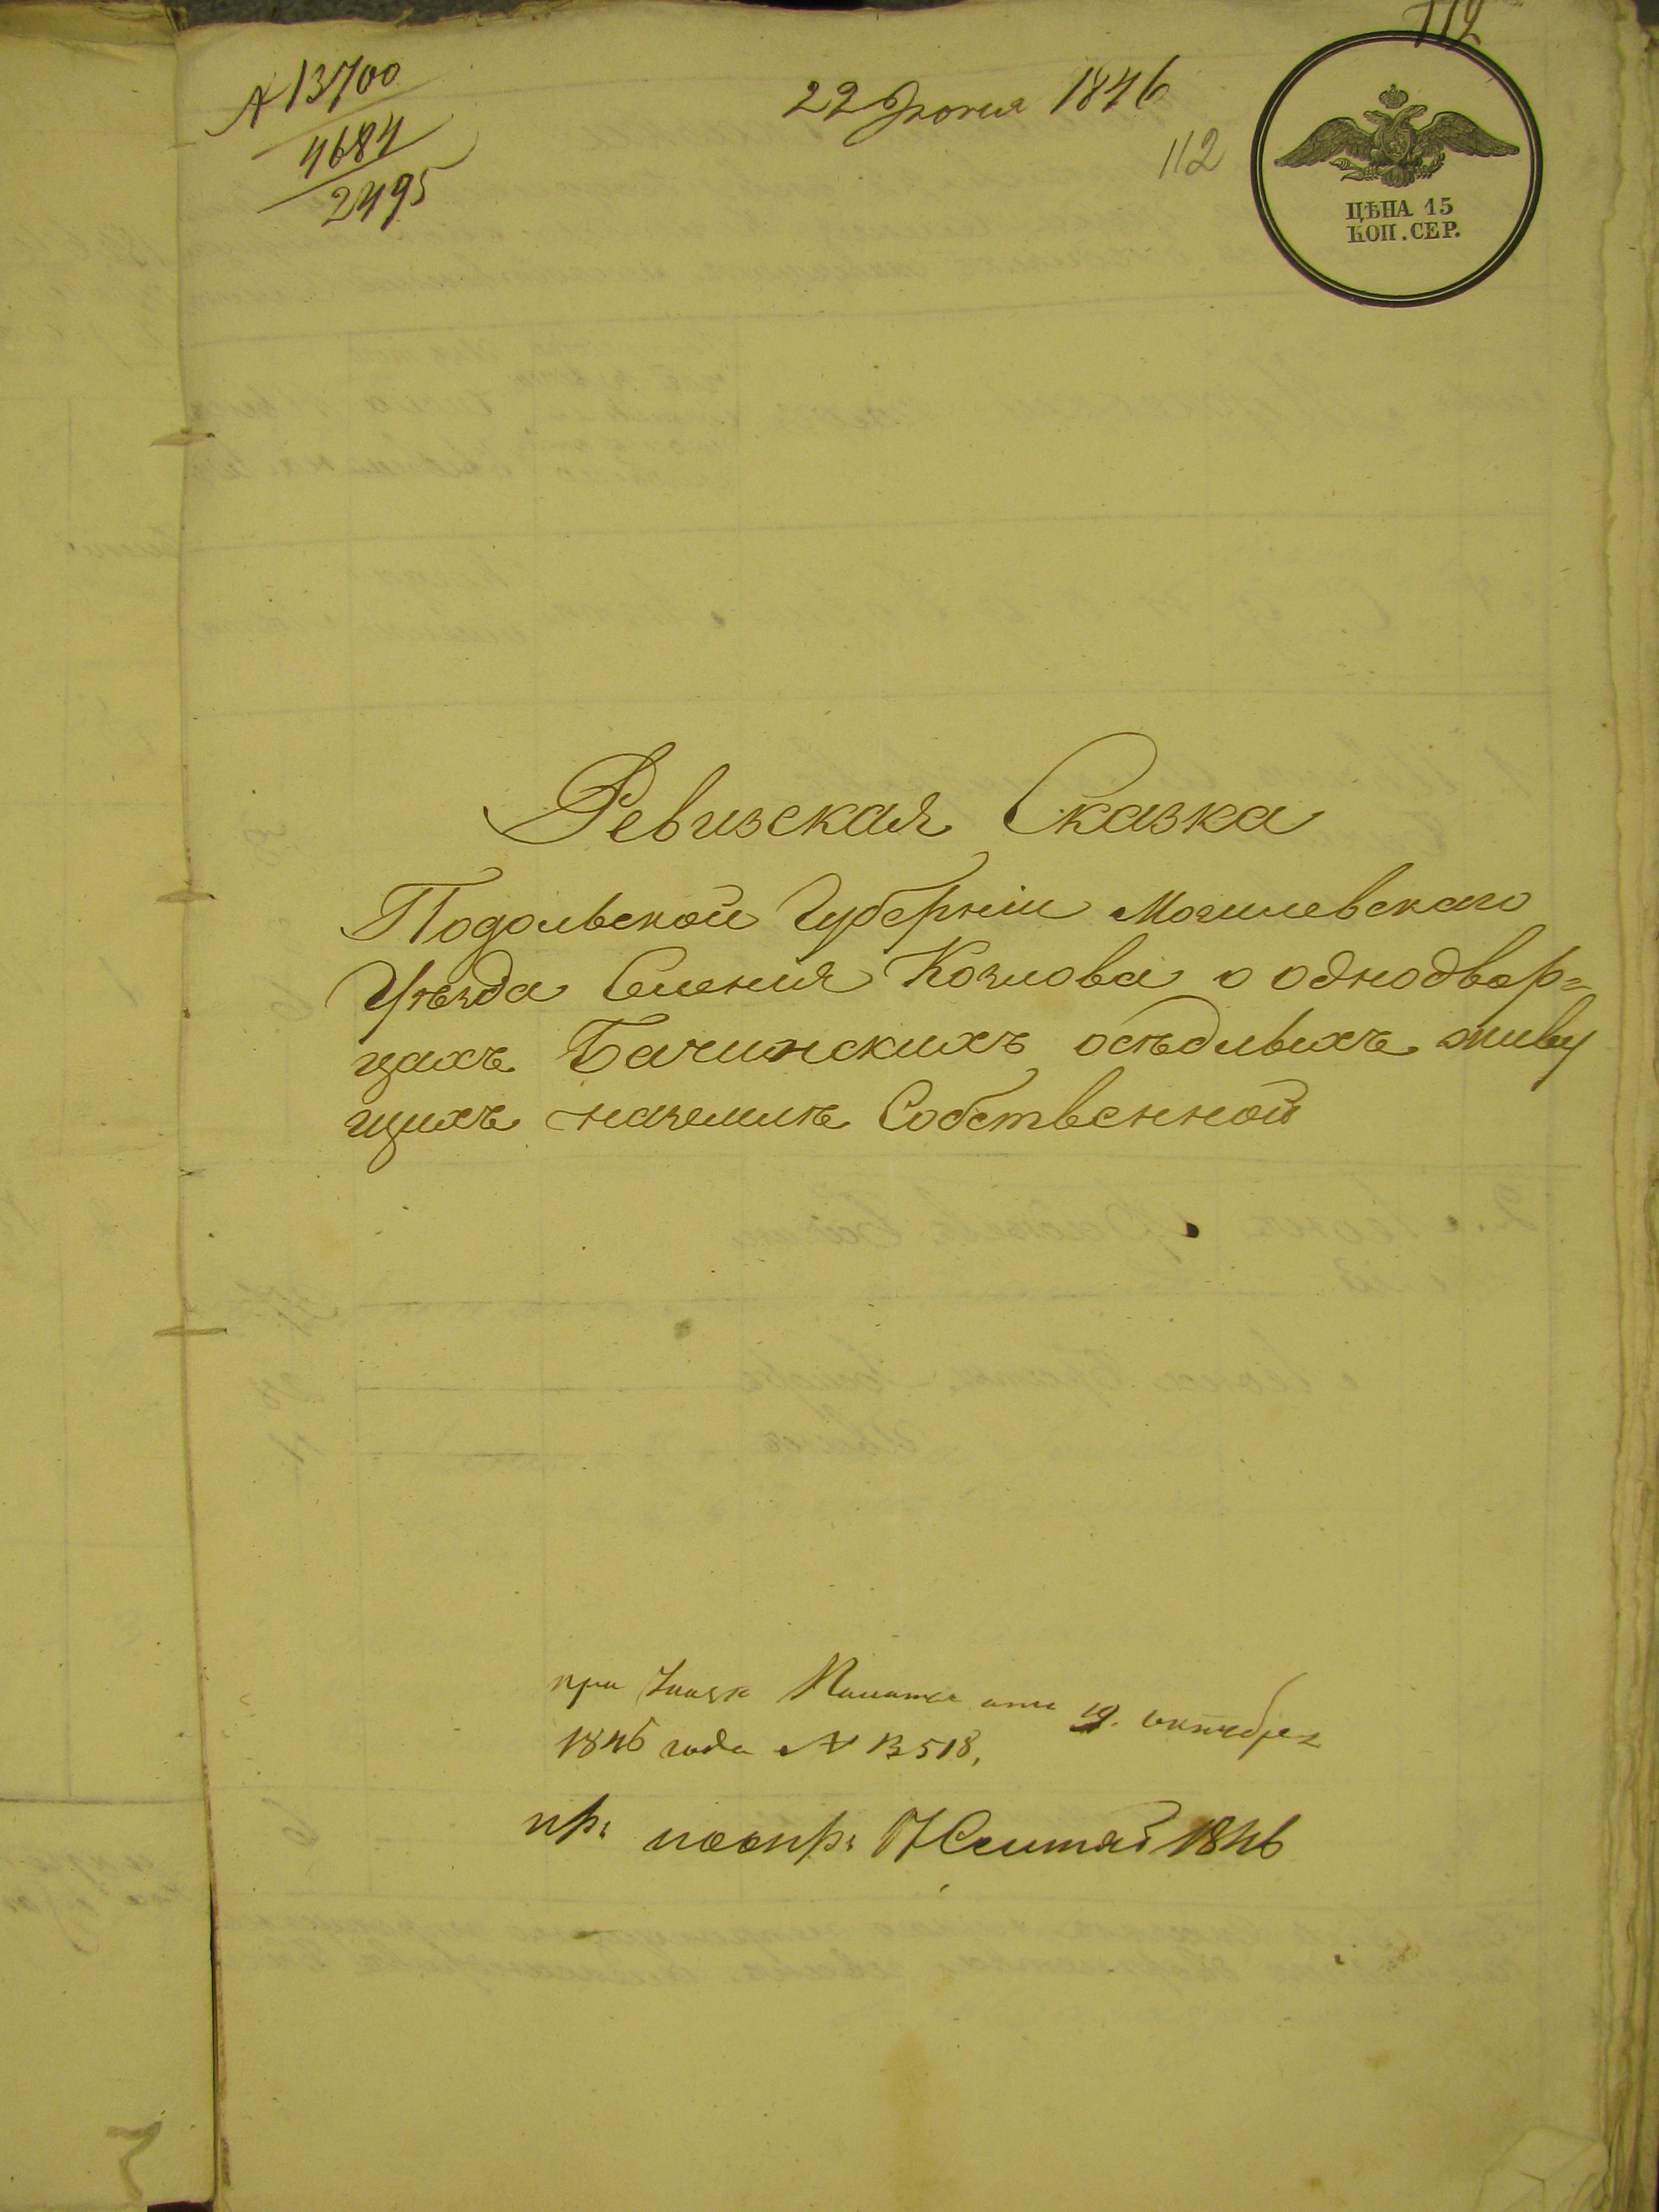 112
№ 13700
4684
2495
22 Іюня 1846
112
ЦѢНА 15
КОП. СЕР.
Ревизская Сказка
Подольской Губерніи Могилевскаго
Уѣзда Селенія Козлова о однодвор=
цахъ Бачинскихъ осѣдлыхъ живу
щихъ на землѣ Собственной
при Указѣ Палаты отъ 19. октября
1846 года № 13518,
17 1846